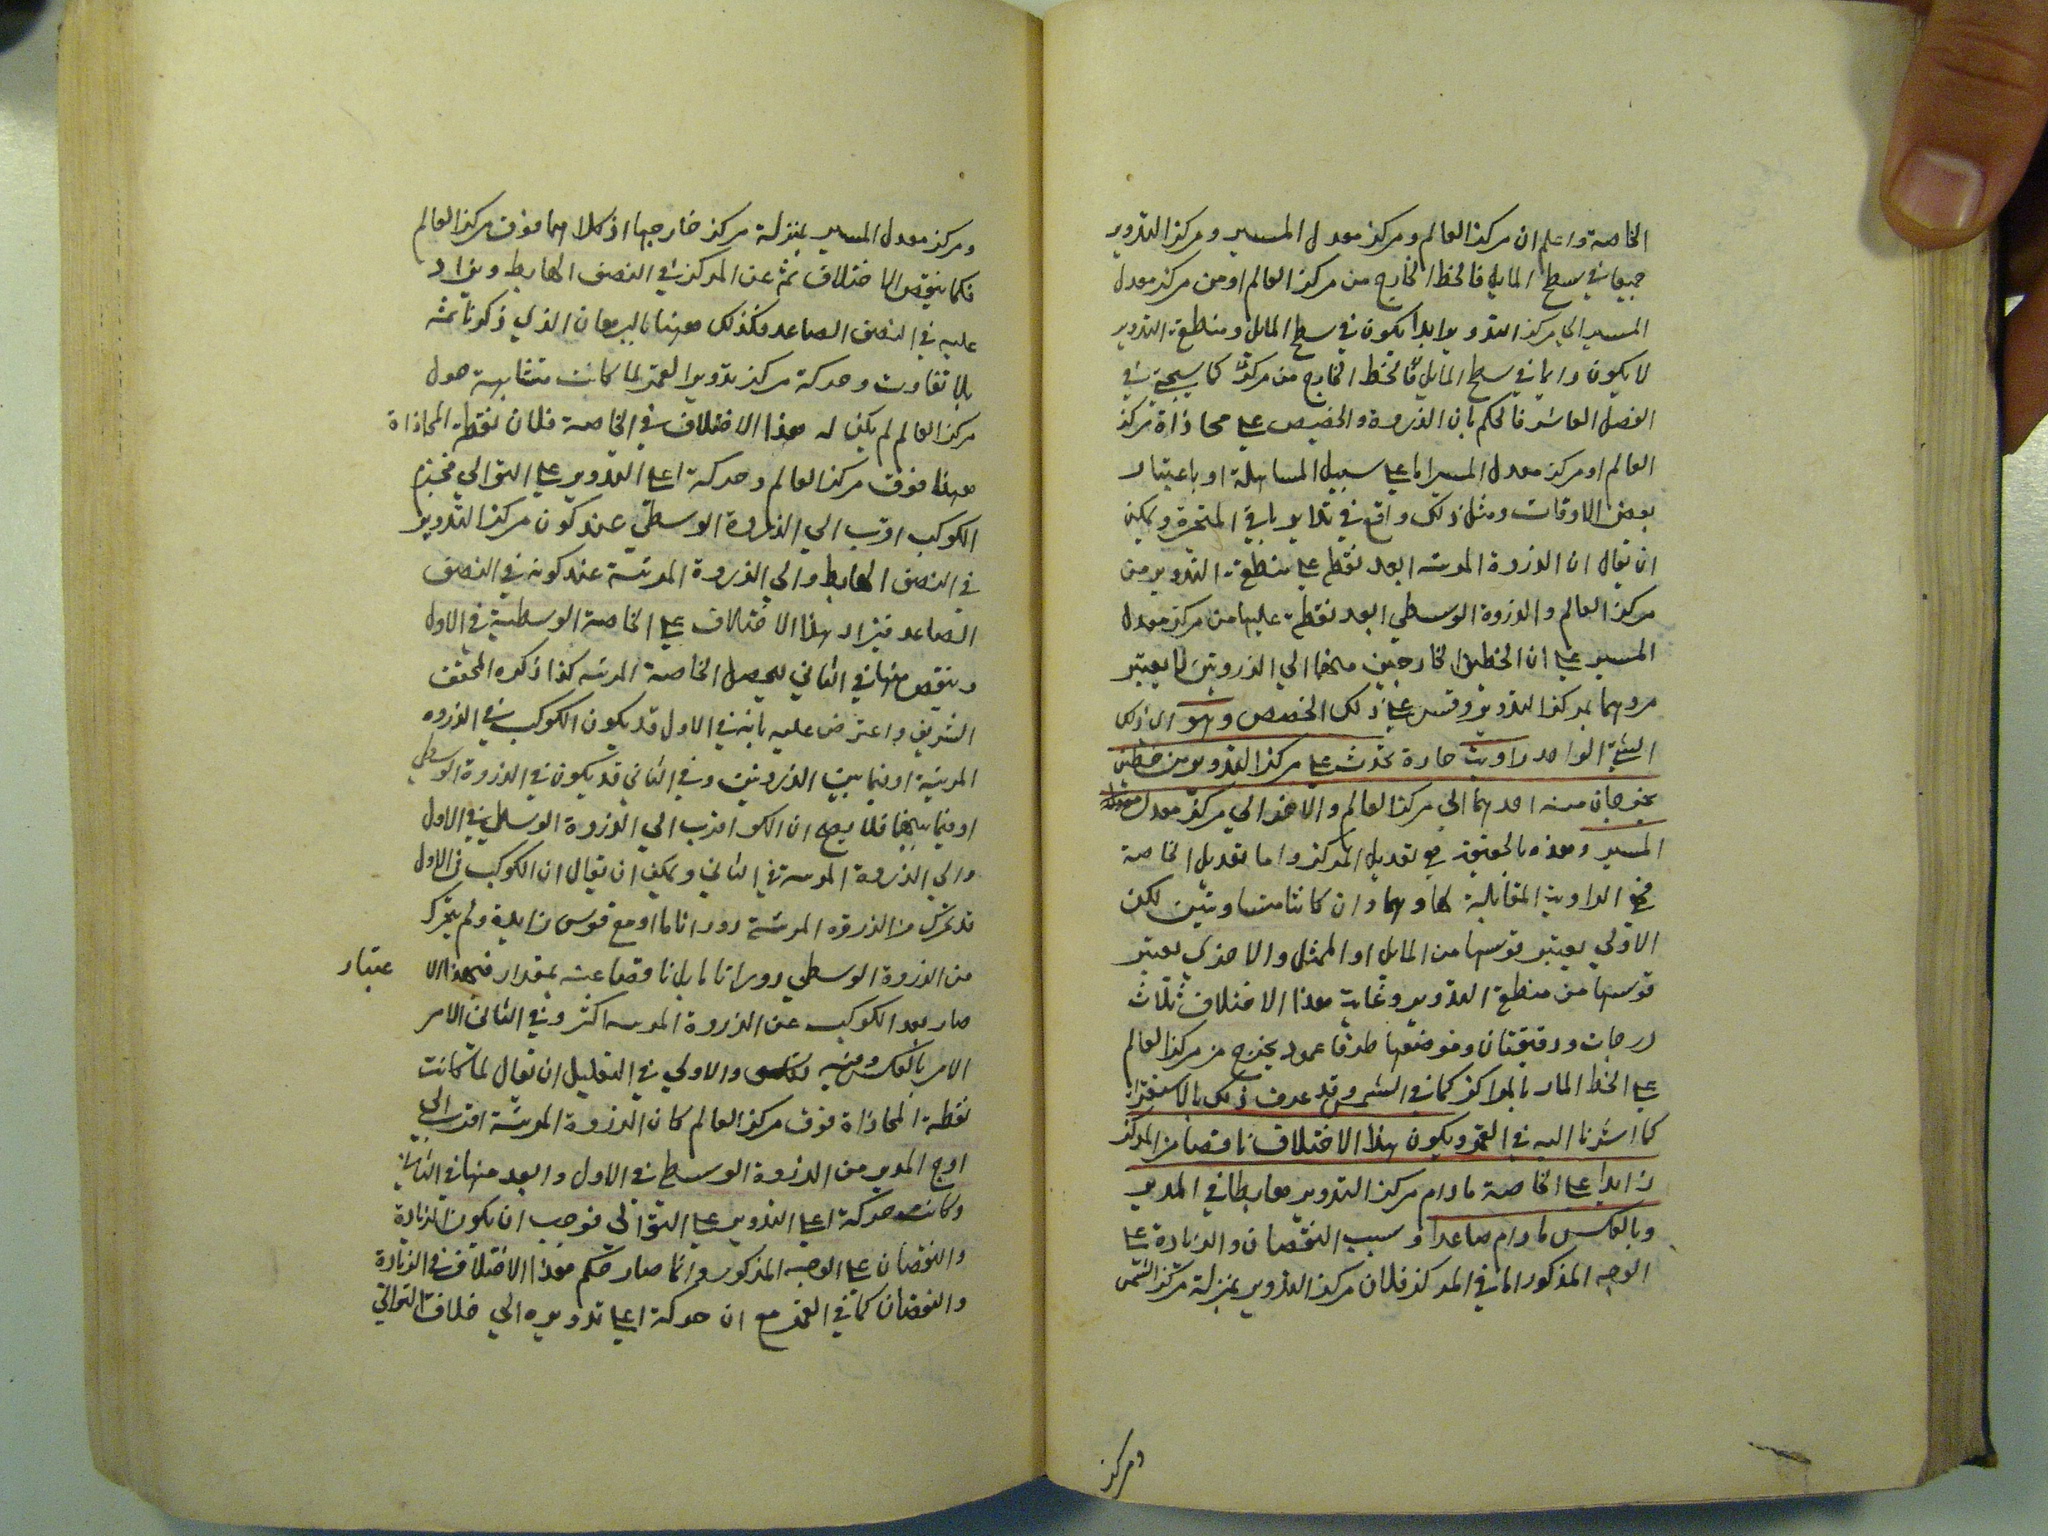 الخاصة واعلم ان مركز العالم ومركز معدل المسير ومركز التدوير
جميعا في سطح المايل فالخط الخارج من مركز العالم او من مركز معدل
المسير الى مركز التدوير ابدا يكون في سطح المايل ومنطقة التدوير
لا يكون دايما في سطح المايل فالخط الخارج من مركزه كما سيجئ في
الفصل العاشر فالحكم بان الذروة والحضيض على محاذاة مركز
العالم او مركز معدل المسير اما على سبيل المساهلة او باعتبار
بعض الاوقات ومثل ذلك واقع في تداوير باقي المتحيرة ويمكن
ان يقال ان الذروة المرئيه ابعد نقطة على منطقة التدوير من
مركز العالم والذروة الوسطي ابعد نقطة عليها من مركز معدل
المسير على ان الخطين الخارجين منهما الي الذروتين لا يعتبر
مرورهما بمركز التدوير وقس على ذلك الحضيض وهو اى ذلك
الشئ الواحد زاوية حادة تحدث على مركز التدوير من خطين
يخرجان منه احدهما الى مركز العالم والاخر الي مركز معدل
المسير وهذه بالحقيقة هي تعديل المركز واما تعديل الخاصة
فهو الزاوية المقابلة لها وهما وان كانتا متساويتين لكن
الاولي يعتبر قوسها من المايل او الممثل والاخرى يعتبر
قوسها من منطقة التدوير وغاية هذا الاختلاف ثلاث
درجات ودقيقتان وموضعها طرفا عمود يخرج من مركز العالم
على الخط المار بالمراكز كما في الشمس وقد عرف ذلك بالاستقراء
كما اشرنا اليه في القمر ويكون هذا الاختلاف ناقصا من المركز
زايدا على الخاصة ما دام مركز التدوير هابطا في المدير
وبالعكس ما دام صاعدا وسبب النقصان والزيادة على
الوجه المذكور اما في المركز فلان مركز التدوير بمنزلة مركز الشمس
ومركز
ومركز معدل المسير بمنزلة مركز خارجها اذ كلاهما فوق مركز العالم
فكما ينقص الاختلاف ثمه عن المركز في النصف الهابط ويزاد
عليه في النصف الصاعد فكذلك ههنا بالبرهان الذي ذكرنا ثمه
بلا تفاوت وحركة مركز تدوير القمر لما كانت متشابهة حول
مركز العالم لم يكن له هذا الاختلاف في الخاصة فلان نقطة المحاذاة
ههنا فوق مركز العالم وحركة اعلى التدوير على التوالي
الكوكب اقرب الي الذروة الوسطي عند كون مركز التدوير
في النصف الهابط والي الذروة المرئية عند كونه في النصف
الصاعد فيزاد هذا الاختلاف على الخاصة الوسطية في الاول
وينقص منها في الثاني ليحصل الخاصة المرئيه كذا ذكره المحقق
الشريف واعترض عليه بانه في الاول قد يكون الكوكب في الذروه
المرئية او فيما بين الذروتين وفي الثاني قد يكون في الذروة الوسطي
او فيما بينهما فلا يصح ان الكو اقرب الي الذروة الوسطي في الاول
والي الذروة المرئيه في الثاني ويمكن ان يقال ان الكوكب في الاول
قد تحرك من الذروه المرئية دورا تاما او مع قوس زايدة ولم يتحرك
من الذروة الوسطي دورا تاما بل ناقصا عنه بمقدار فبهذا الا عتبار
صار بعد الكوكب عن الذروة المرئيه اكثر وفي الثاني الامر
الامر بالعكس والاولي في التعليل ان يقال لما كانت
نقطة المحاذاة فوق مركز العالم كان الذروة المرئية اقرب الى
اوج المدير من الذروة الوسطي في الاول وابعد منها في الثاني
وكانت حركة اعلى التدوير على التوالي فوجب ان يكون الزيادة
والنقصان على الوجه المذكور وانما صار حكم هذا الاختلاف في الزيادة
والنقصان كما في القمر مع ان حركة اعلى تدويره الي خلاف التوالي